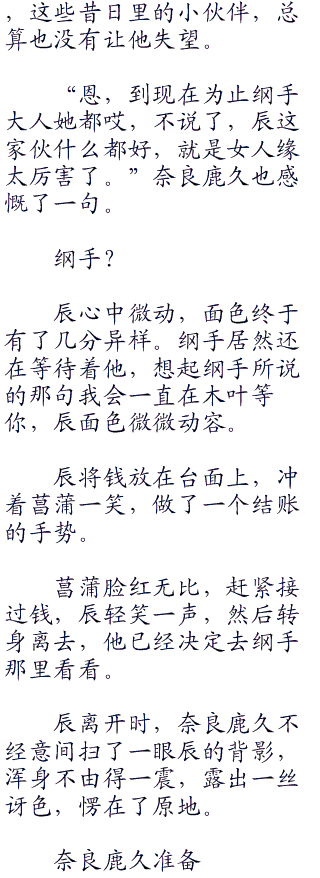 ，这些昔日里的小伙伴，总
算也没有让他失望。
“恩，到现在为止纲手
大人她都哎，不说了，辰这
家伙什么都好，就是女人缘
太厉害了。”奈良鹿久也感
慨了一句。
纲手？
辰心中微动，面色终于
有了几分异样。纲手居然还
在等待着他，想起纲手所说
的那句我会一直在木叶等
你，辰面色微微动容。
辰将钱放在台面上，冲
着菖蒲一笑，做了一个结账
的手势。
菖蒲脸红无比，赶紧接
过钱，辰轻笑一声，然后转
身离去，他已经决定去纲手
那里看看。
辰离开时，奈良鹿久不
经意间扫了一眼辰的背影，
浑身不由得一震，露出一丝
讶色，愣在了原地。
奈良鹿久准备